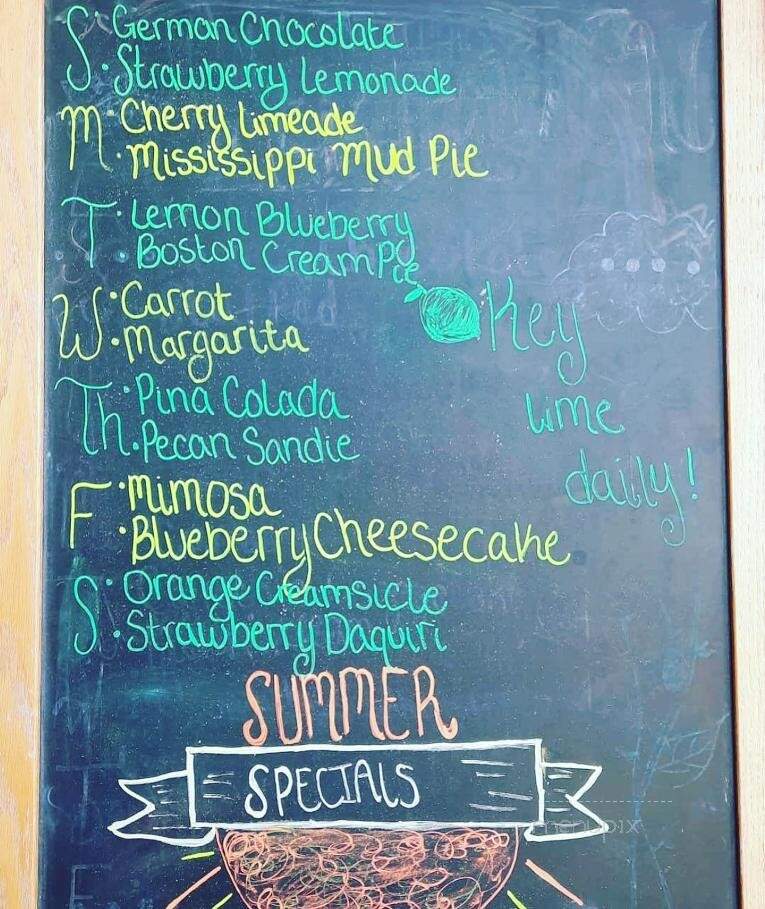 S • German Chocolate
• Strawberry Lemonade
M • Cherry Limeade
• Mississippi Mud Pie
T • Lemon Blueberry
• Boston Cream Pie
W • Carrot
• Margarita
Th • Pina Colada
• Pecan Sandie
F • Mimosa
• Blueberry Cheesecake
S • Orange Creamsicle
• Strawberry Daquiri
Key
Lime
daily!
SUMMER
SPECIALS
menupix